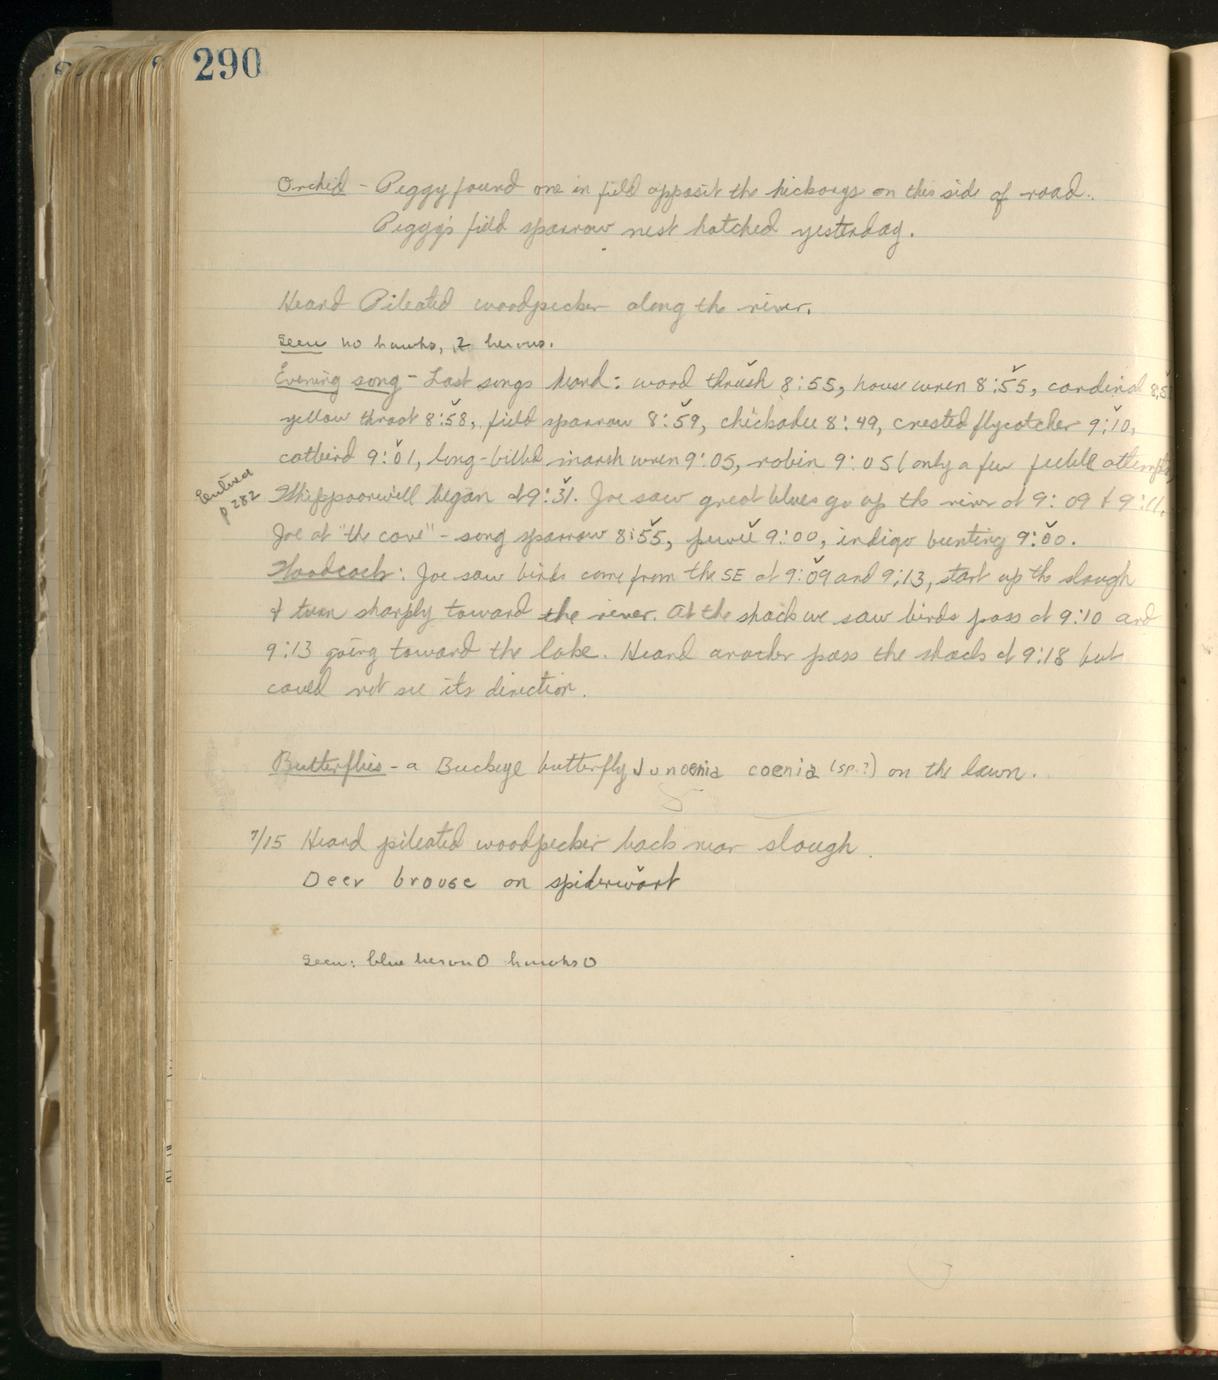 290
Orchid - Peggy found one in field opposit the hickorys on this side of road.
Peggy's field sparrow nest hatched yesterday.
Heard Pileated woodpecker along the river.
Seen no hawks, 2 herons.
Evening song - Last songs heard: wood thrush 8:55, house wren 8:55, cardinal
yellow throat 8:58, field sparrow 8:59, chickadee 8:49, crested flycatcher 9:10,
catbird 9:01, long-billed marsh wren 9:05, robin 9:05 (only a few feeble attempts,
Entered
p 282
Whippoorwill began at 9:31. Joe saw great blues go up the river at 9:09 & 9:11.
Joe at "the cove" - song sparrow 8:55, pewee 9:00, indigo bunting 9:00.
Woodcock: Joe saw birds come from the SE at 9:09 and 9:13, start up the slough
& turn sharply toward the river. At the shack we saw birds pass at 9:10 and
9:13 going toward the lake. Heard another pass the shack at 9:18 but
could not see its direction.
Butterflies - a Buckeye butterfly Junoenia coenia (sp.?) on the lawn.
7/15 Heard pileated woodpecker back near slough.
Deer brouse on spiderwort
Seen: blue heron 0 hawks 0